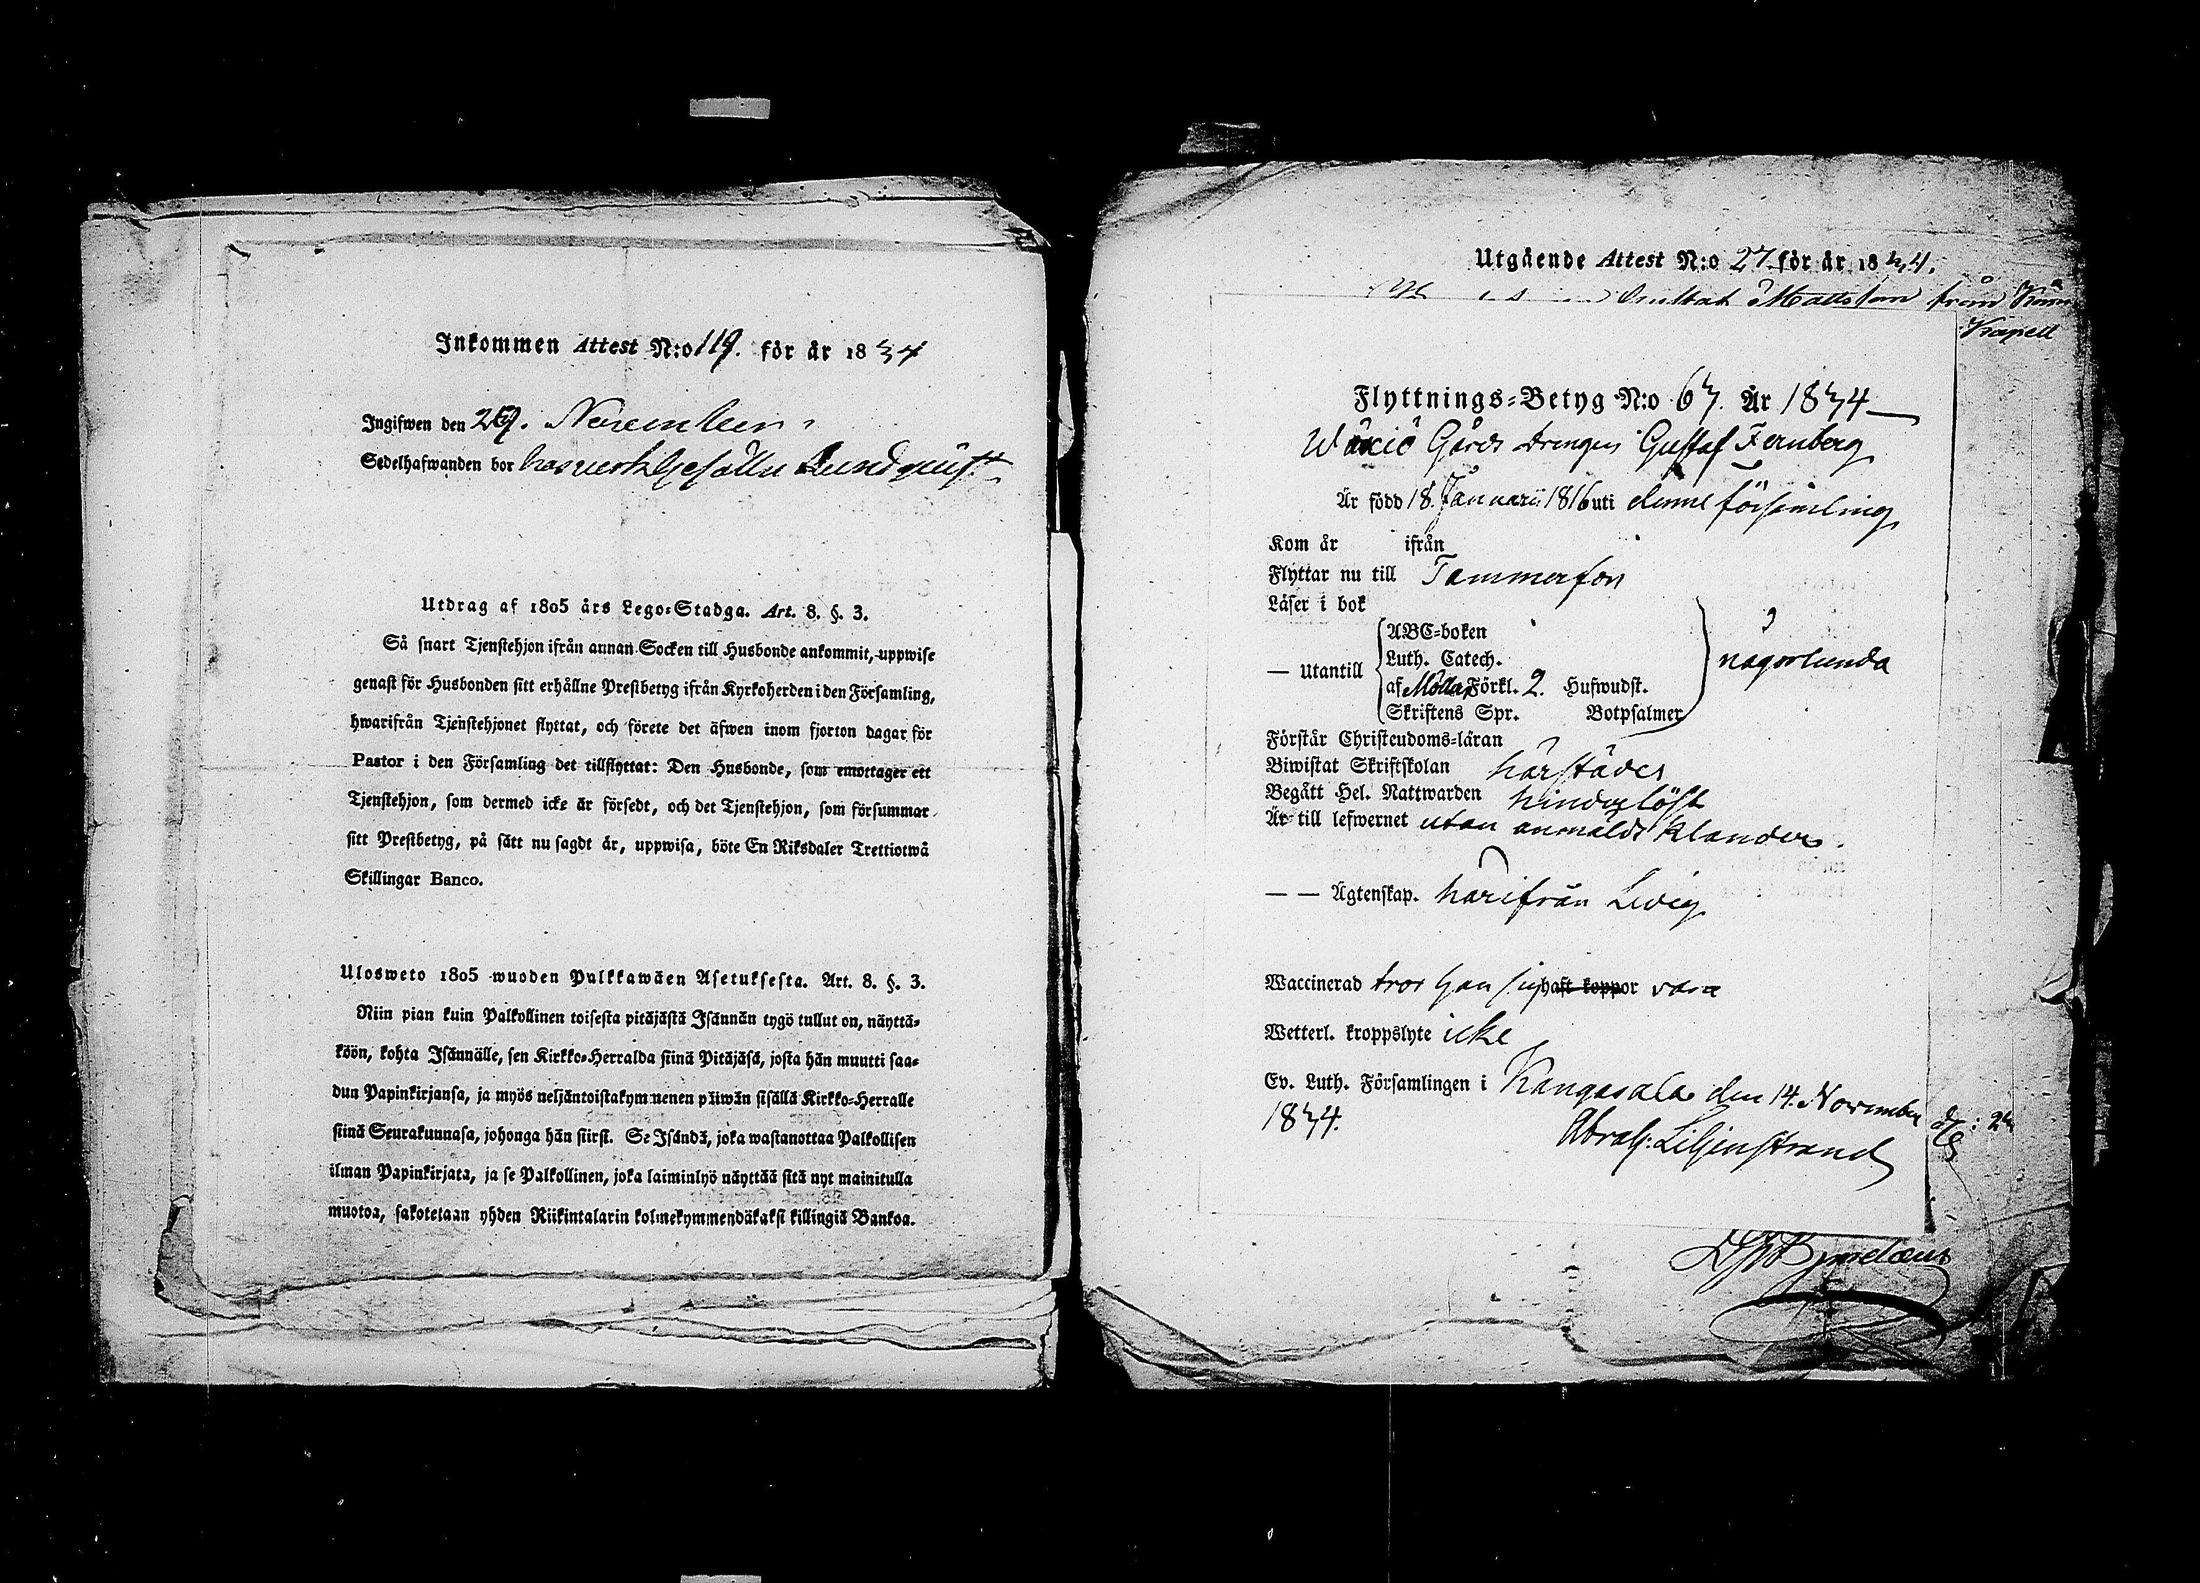 Inkommen Attest N:o 119. för år 1834
Ingifwen den 29. November
Sedelhafwanden bor hos verkGesälln Lundquist
Utdrag af 1805 års Lego=Stadga. Art. 8. §. 3.
Så snart Tjenstehjon ifrån annan Socken till Husbonde ankommit, uppwise
genast för Husbonden sitt erhållne Prestbetyg ifrån Kyrkoherden i den Församling,
hwarifrån Tjenstehjonet flyttat, och förete det äfwen inom fjorton dagar för
Pastor i den Församling det tillflyttat: Den Husbonde, som emottager ett
Tjenstehjon, som dermed icke är försedt, och det Tjenstehjon, som försummar
sitt Prestbetyg, på sätt nu sagdt är, uppwisa, böte En Riksdaler Trettiotwå
Skillingar Banco.
Ulosweto 1805 wuoden Palkkawäen Asetuksesta. Art. 8. §. 3.
Niin pian kuin Palkollinen toisesta pitäjästä Isännän tygö tullut on, näyttä=
köön, kohta Isännälle, sen Kirkko=Herralda siinä Pitäjäsä, josta hän muutti saa=
dun Papinkirjansa, ja myös neljäntoistakymmenen päiwän sisällä Kirkko=Herralle
siinä Seurakunnasa, johonga hän siirsi. Se Isändä, joka wastanottaa Palkollisen
ilman Papinkirjata, ja se Palkollinen, joka laiminlyö näyttää sitä nyt mainitulla
muotoa, sakotetaan yhden Riikintalarin kolmekymmendäkaksi killingiä Bankoa.
Utgående Attest N:o 27 för år 1834.
Mattsson från
Kapell
Flyttnings=Betyg N:o 67. År 1834
Wäxiö Gårds Drengen Gustaf Fernberg
Är född 18. Januarii 1816 uti denne församling
Kom år ifrån
Flyttar nu till Tammerfors
Läser i bok
— Utantill
ABC=boken
Luth. Catech.
af Möllers Förkl. 2. Hufwudst.
Skriftens Spr. Botpsalmer
någorlunda
Förstår Christendoms=läran
Biwistat Skriftskolan härstädes
Begått Hel. Nattwarden hinderlöst
Är till lefwernet utan anmäldt klander.
— — Ägtenskap. härifrån Ledig
Waccinerad tror han sig haft koppor vara
Wetterl. kroppslyte icke
Ev. Luth. Församlingen i Kangasala den 14. November
1834. Abrah: Liljenstrand